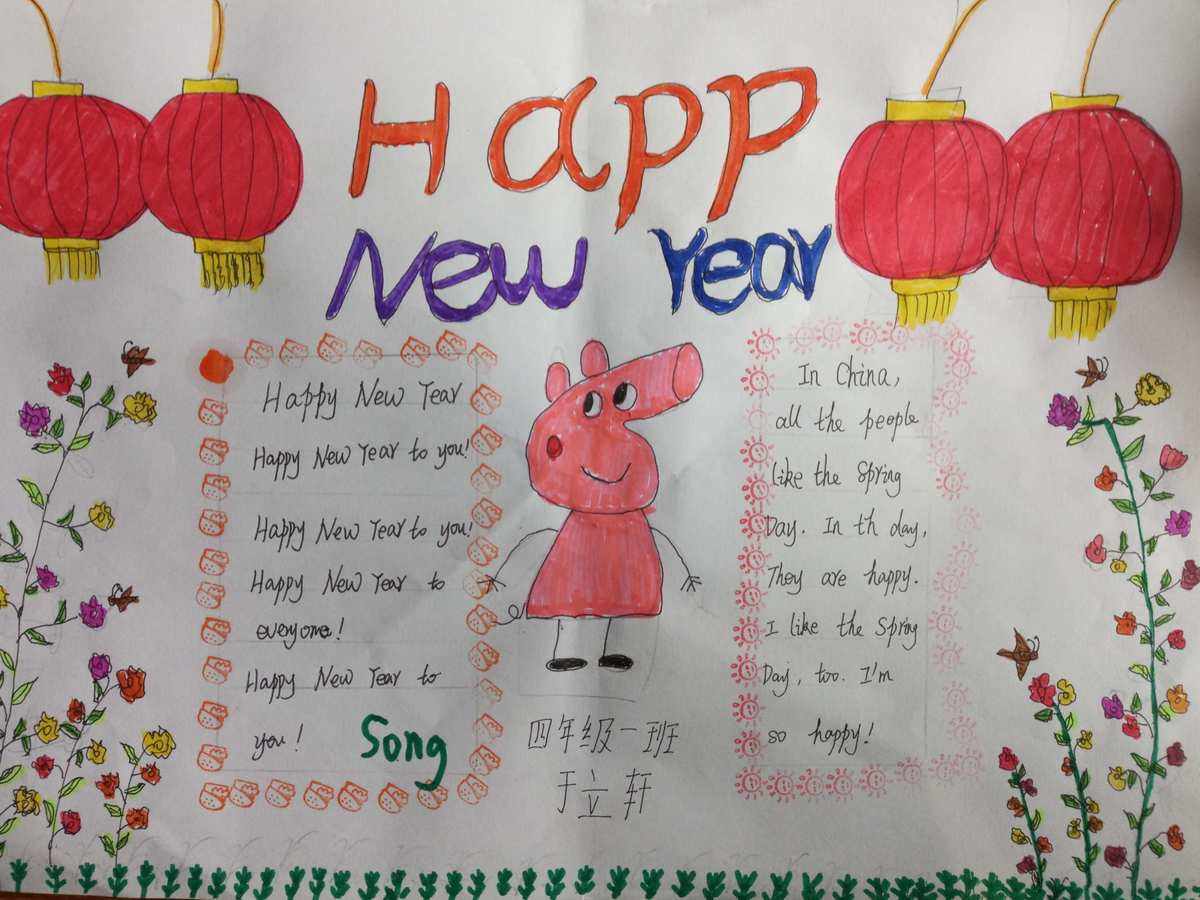 Happ
New Year
Happy New Year
Happy New Year to you!
Happy New Year to you!
Happy New Year to
everyone!
Happy New Year to
you!
Song
In China,
all the people
like the Spring
Day. In th day,
They are happy.
I like the Spring
Day, too. I'm
so happy!
四年级一班
于立轩